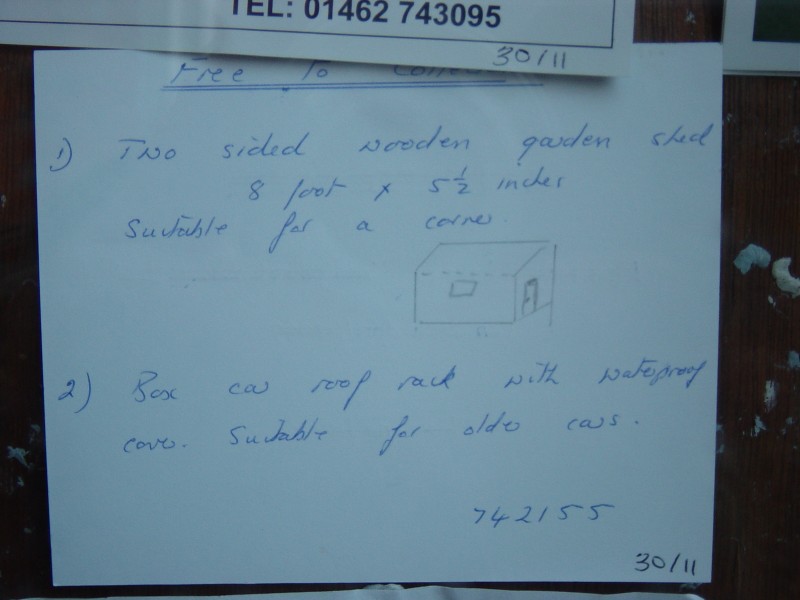 TEL: 01462 743095
30/11
Free To Collect
1) Two sided wooden garden shed
8 foot x 5 ½ inches
Suitable for a corner.
2) Box car roof rack with waterproof
cover. Suitable for older cars.
742155
30/11